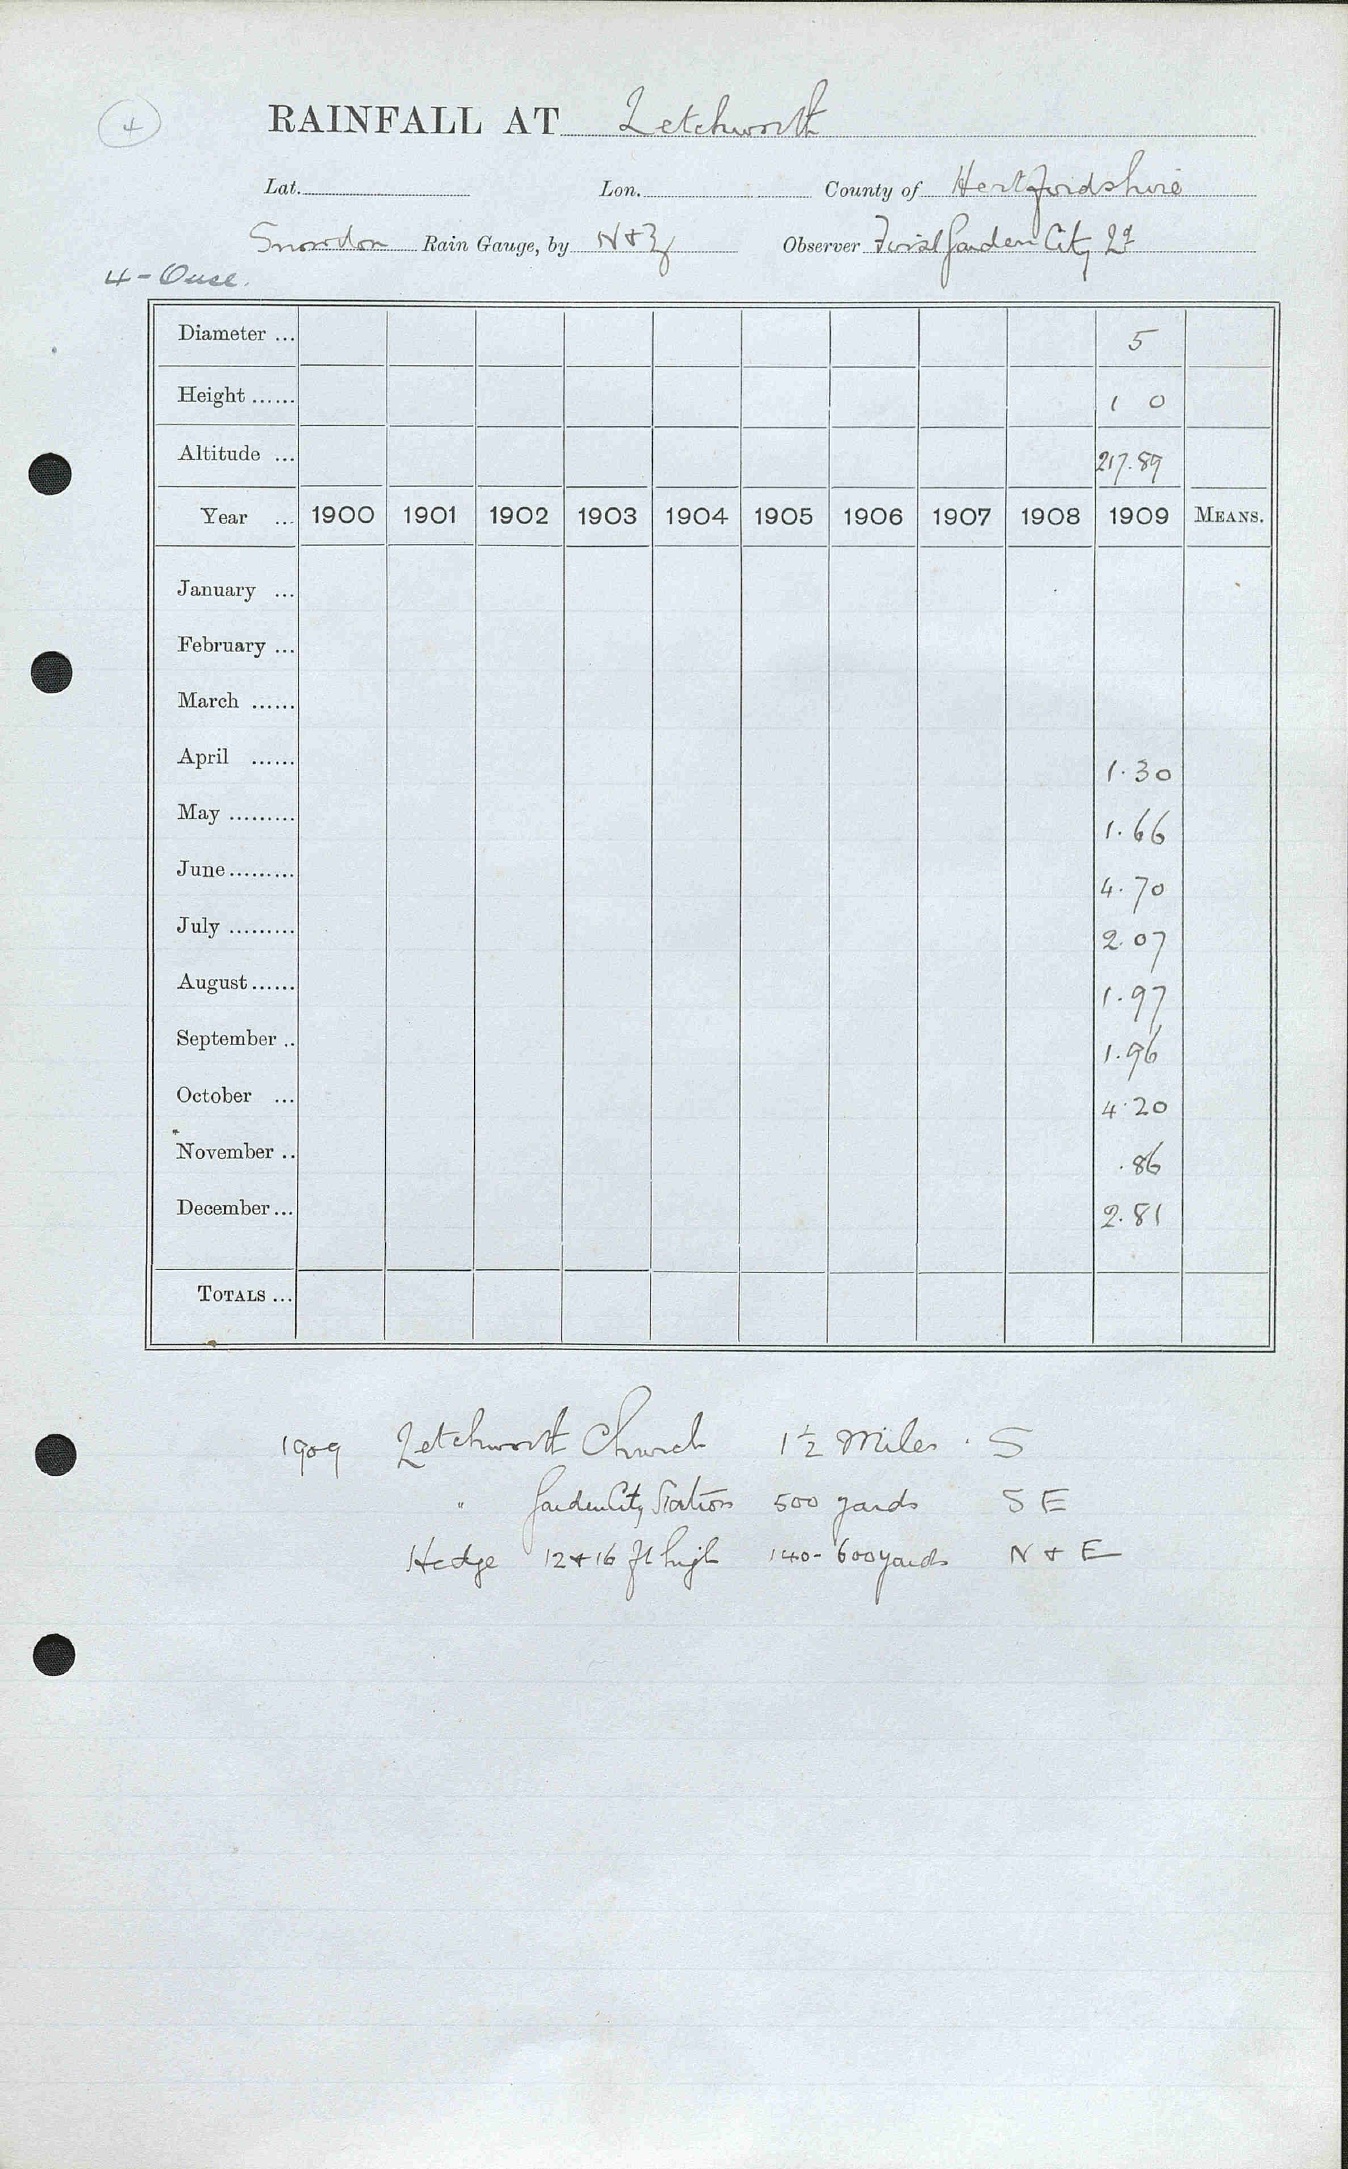 4
RAINFALL AT Letchworth
Lat. Lon. County of Hertfordshire
Snowdon Rain Gauge, by N & Z Observer First Garden City Ld
4 - Ouse.
Diameter ... 5
Height ...... 1 0
Altitude ... 217.89
Year ... 1900 1901 1902 1903 1904 1905 1906 1907 1908 1909 MEANS.
January ...
February ...
March ......
April ...... 1.30
May ......... 1.66
June ......... 4.70
July ......... 2.07
August ...... 1.97
September .. 1.96
October ... 4.20
November .. .86
December ... 2.81
TOTALS ...
1909 Letchworth Church 1½ Miles . S
" Garden City Station 500 yards S E
Hedge 12 & 16 ft high 140 - 600 yards N & E